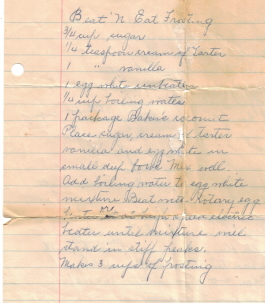 Beat 'N Eat Frosting
3/4 cup sugar
1/4 teaspoon cream of Tarter
1 " vanilla
1 egg white unbeaten
1/4 cup boiling water
1 package Baker's coconut
Place sugar, cream of Tarter
vanilla and egg white in
small deep bowl Mix well.
Add boiling water to egg white
mixture Beat with rotary egg
at high speed electric
beater until mixture will
stand in stiff peaks.
Makes 3 cups of frosting